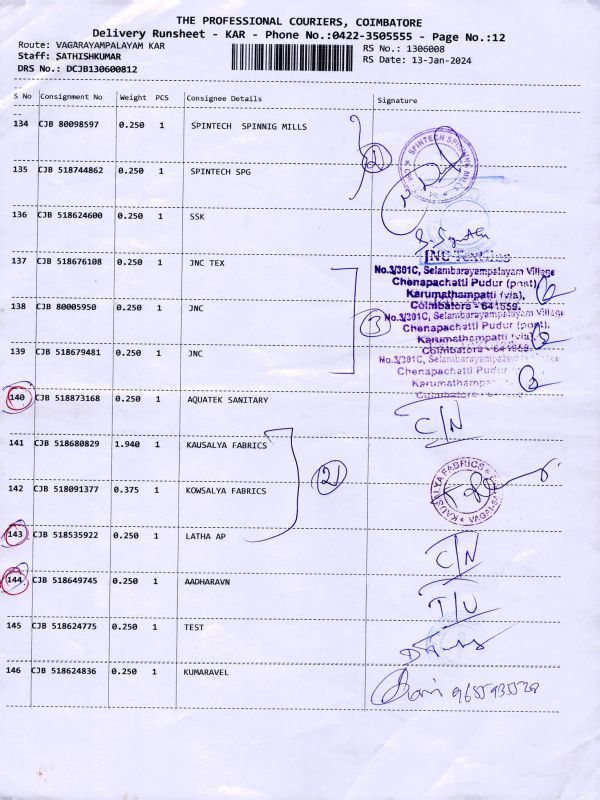 THE PROFESSIONAL COURIERS, COIMBATORE
Delivery Runsheet - KAR - Phone No.:0422-3505555 - Page No.:12
Route: VAGARAYAMPALAYAM KAR
RS No.: 1306008
Staff: SATHISHKUMAR
RS Date: 13-Jan-2024
DRS No.: DCJB130600812
S No Consignment No Weight PCS Consignee Details Signature
134 CJB 80098597 0.250 1 SPINTECH SPINNIG MILLS
135 CJB 518744862 0.250 1 SPINTECH SPG
136 CJB 518624600 0.250 1 SSK
137 CJB 518676108 0.250 1 JNC TEX
No.3/301C, Selambarayampalayam Village
Chenapachatti Pudur (post),
Karumathampatti (via),
Coimbatore - 641659.
138 CJB 80005950 0.250 1 JNC
3
No.3/301C, Selambarayampalayam Village
Chenapachatti Pudur (post),
Karumathampatti (via),
Coimbatore - 641659.
139 CJB 518679481 0.250 1 JNC
No.3/301C, Selambarayampalayam Village
Chenapachatti Pudur
Karumathampa
140 CJB 518873168 0.250 1 AQUATEK SANITARY C/N
141 CJB 518680829 1.940 1 KAUSALYA FABRICS
2
KAUSALYA FABRICS
142 CJB 518091377 0.375 1 KOWSALYA FABRICS
143 CJB 518535922 0.250 1 LATHA AP C/N
144 CJB 518649745 0.250 1 AADHARAVN T/U
145 CJB 518624775 0.250 1 TEST
146 CJB 518624836 0.250 1 KUMARAVEL